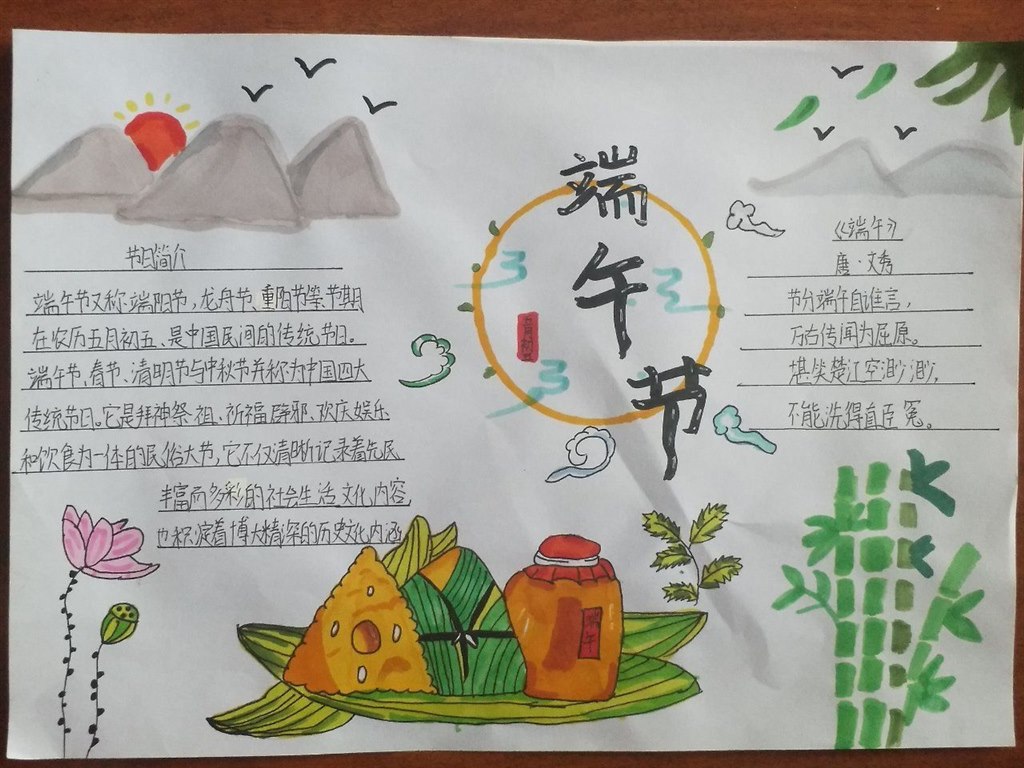 节日简介
端午节又称端阳节,龙舟节、重阳节等,节期
在农历五月初五、是中国民间的传统节日。
端午节、春节、清明节与中秋节并称为中国四大
传统节日。它是拜神祭祖、祈福辟邪、欢庆娱乐
和饮食为一体的民俗大节,它不仅清晰记录着先民
丰富而多彩的社会生活文化内容
也积淀着博大精深的历史文化内涵
端午节
五月初五
端午
《端午》
唐·文秀
节分端午自谁言,
万古传闻为屈原。
堪笑楚江空渺渺,
不能洗得直臣冤。